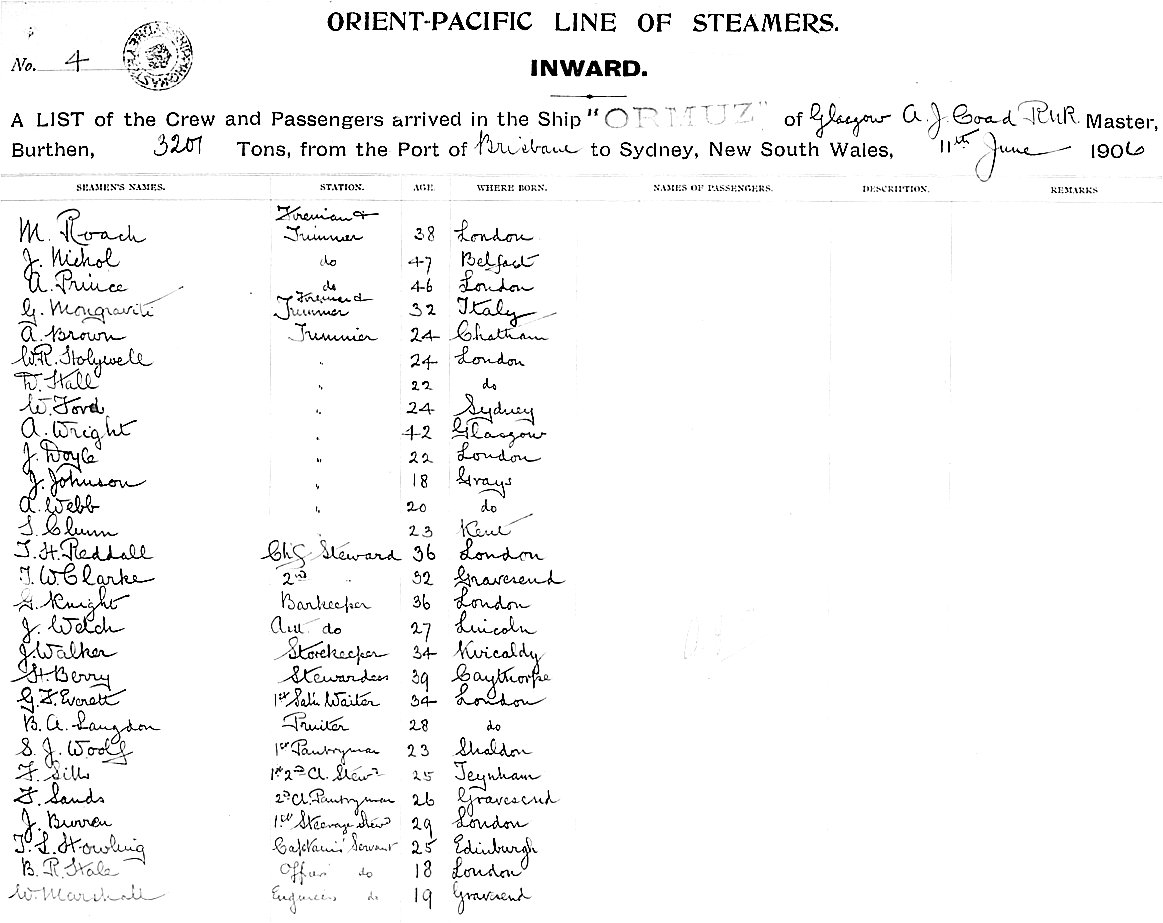 ORIENT-PACIFIC LINE OF STEAMERS.
No. 4
INWARD.
A LIST of the Crew and Passengers arrived in the Ship "ORMUZ" of Glasgow A. J. Coad RNR Master,
Burthen, 3201 Tons, from the Port of Brisbane to Sydney, New South Wales, 11th June 1906
SEAMEN'S NAMES. STATION. AGE. WHERE BORN. NAMES OF PASSENGERS. DESCRIPTION. REMARKS
M. Roach Fireman & Trimmer 38 London
J. Nichol do 47 Belfast
A. Prince do 46 London
G. Mongraviti Fireman & Trimmer 32 Italy
A. Brown Trimmer 24 Chatham
W.R. Holywell " 24 London
W. Hall " 22 do
W. Ford " 24 Sydney
A. Wright " 42 Glasgow
J. Doyle " 22 London
J. Johnson " 18 Grays
A. Webb " 20 do
Clunn 23 Kent
T. H. Reddall Chf Steward 36 London
T. W. Clarke 2nd " 32 Gravesend
G. Knight Barkeeper 36 London
J. Welch Asst do 27 Lincoln
J Walker Storekeeper 34 Kircaldy
H. Berry Stewardess 39 Caythorpe
G. F. Everett 1st Saln Waiter 34 London
B. A. Langdon Fruiter 28 do
S. J. Woolf 1st Pantryman 23 Shaldon
F. Sills 1st 2nd Cl. Stewd 25 Teynham
F. Sands 2nd Cl. Pantryman 26 Gravesend
J. Burren 1st Steerage Stewd 29 London
T. L. Howling Captains Servant 25 Edinburgh
B. R. Hale Officers do 18 London
W. Marshall Engineers do 19 Gravesend